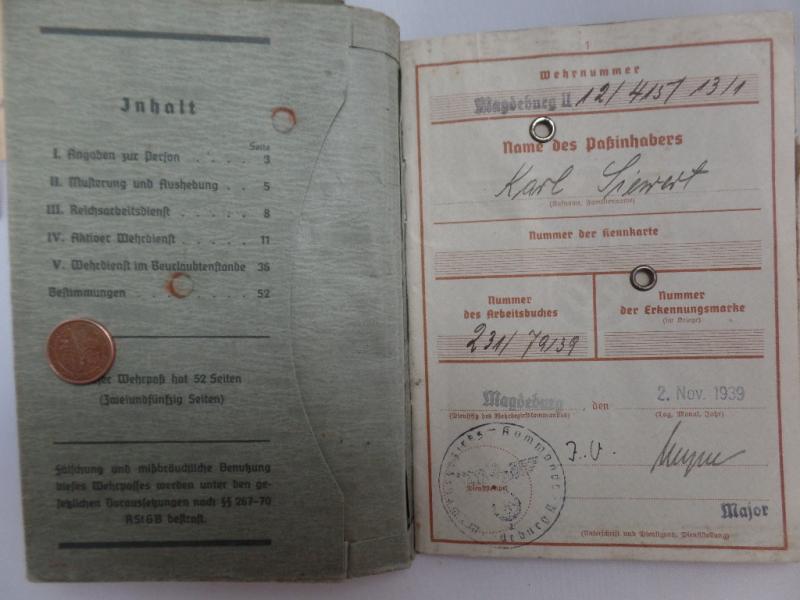 Inhalt
Seite
I. Angaben zur Person . . . . 3
II. Musterung und Aushebung . . 5
III. Reichsarbeitsdienst . . . . . 8
IV. Aktiver Wehrdienst . . . . . 11
V. Wehrdienst im Beurlaubtenstande 36
Bestimmungen . . . . . . . 52
Wehrpaß hat 52 Seiten
(Zweiundfünfzig Seiten)
Fälschung und mißbräuchliche Benutzung
dieses Wehrpasses werden unter den ge-
setzlichen Voraussetzungen nach §§ 267-70
RStGB bestraft.
1
Wehrnummer
Magdeburg II 12/415/13/1
Name des Paßinhabers
Karl Siewert
(Rufname, Familienname)
Nummer der Kennkarte
Nummer
des Arbeitsbuches
231/79/39
Nummer
der Erkennungsmarke
(im Kriege)
Magdeburg, den 2. Nov. 1939
(Dienstsitz des Wehrbezirkskommandos) (Tag, Monat, Jahr)
J.V.
Major
(Unterschrift und Dienstgrad, Dienststellung)